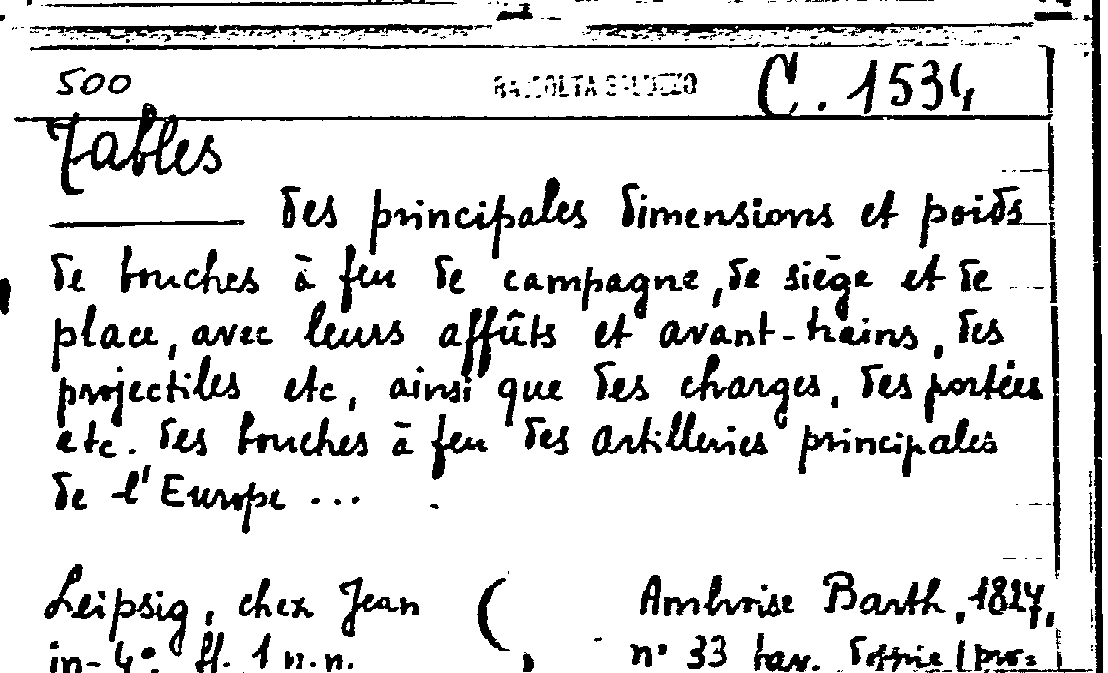 500 RACCOLTA SALUZZO C. 1534
Tables
des principales dimensions et poids
de bouches à feu de campagne, de siège et de
place, avec leurs affûts et avant-trains, des
projectiles etc, ainsi que des charges, des portées
etc. des bouches à feu des artilleries principales
de l'Europe ...
Leipsig, chez Jean ( Ambroise Barth, 1827,
in-4°. ff. 1 n.n. , n° 33 tav. doppie (pro=